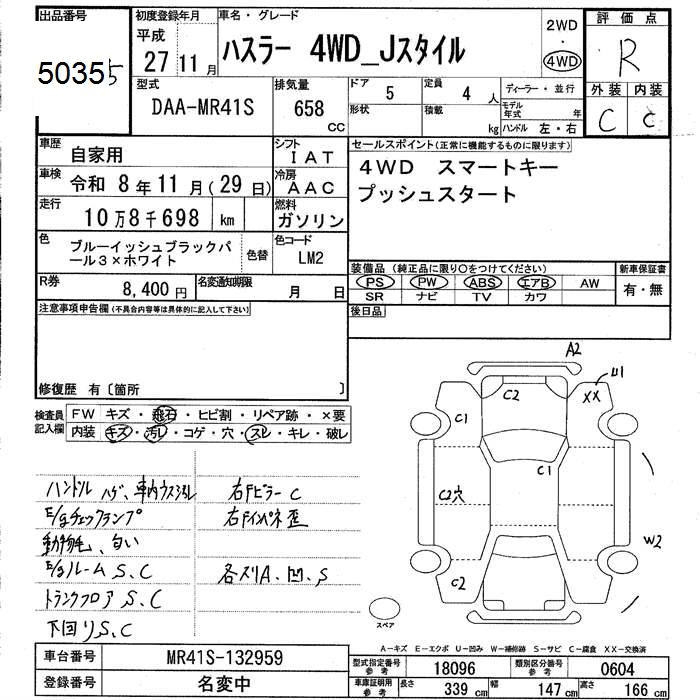 出品番号
50355
初度登録年月
平成
27 11 月
車名・グレード
ハスラー 4WD_Jスタイル
2WD
・
4WD
評価点
R
外装 内装
C C
型式
DAA-MR41S
排気量
658
CC
ドア
5
定員
4 人
形状
積載
kg
ディーラー・並行
モデル年式 年
ハンドル 左・右
車歴
自家用
シフト
IAT
車検
令和 8年11月(29日)
冷房
AAC
走行
10万8千698 km
燃料
ガソリン
色
ブルーイッシュブラックパ
ール3×ホワイト
色替
色コード
LM2
R券
8,400円
名変通知期限
月 日
セールスポイント(正常に機能するものに限ります)
4WD スマートキー
プッシュスタート
装備品 (純正品に限り○をつけてください)
PS PW ABS エアB AW
SR ナビ TV カワ
新車保証書
有・無
後日品
注意事項申告欄(不具合内容等は具体的に記入して下さい)
修復歴 有〔箇所 〕
検査員
記入欄
FW キズ・飛石・ヒビ割・リペア跡・×要
内装 キズ・汚レ・コゲ・穴・スレ・キレ・破レ
ハンドル ハゲ、車内ウス汚レ
E/gチェックランプ
動物毛、匂い
E/gルームS、C
トランクフロアS、C
下回りS、C
右Fピラー C
右Fインパネ歪
各スリA、凹、S
A2
C2
U1
XX
C1
C1
C2穴
W2
C2
スペア
A−キズ E−エクボ U−凹み W−補修跡 S−サビ C−腐食 XX−交換済
車台番号
MR41S-132959
登録番号
名変中
型式指定番号
参考
18096
類別区分番号
参考
0604
車庫証明用
参考
長さ
339 cm
幅
147 cm
高さ
166 cm